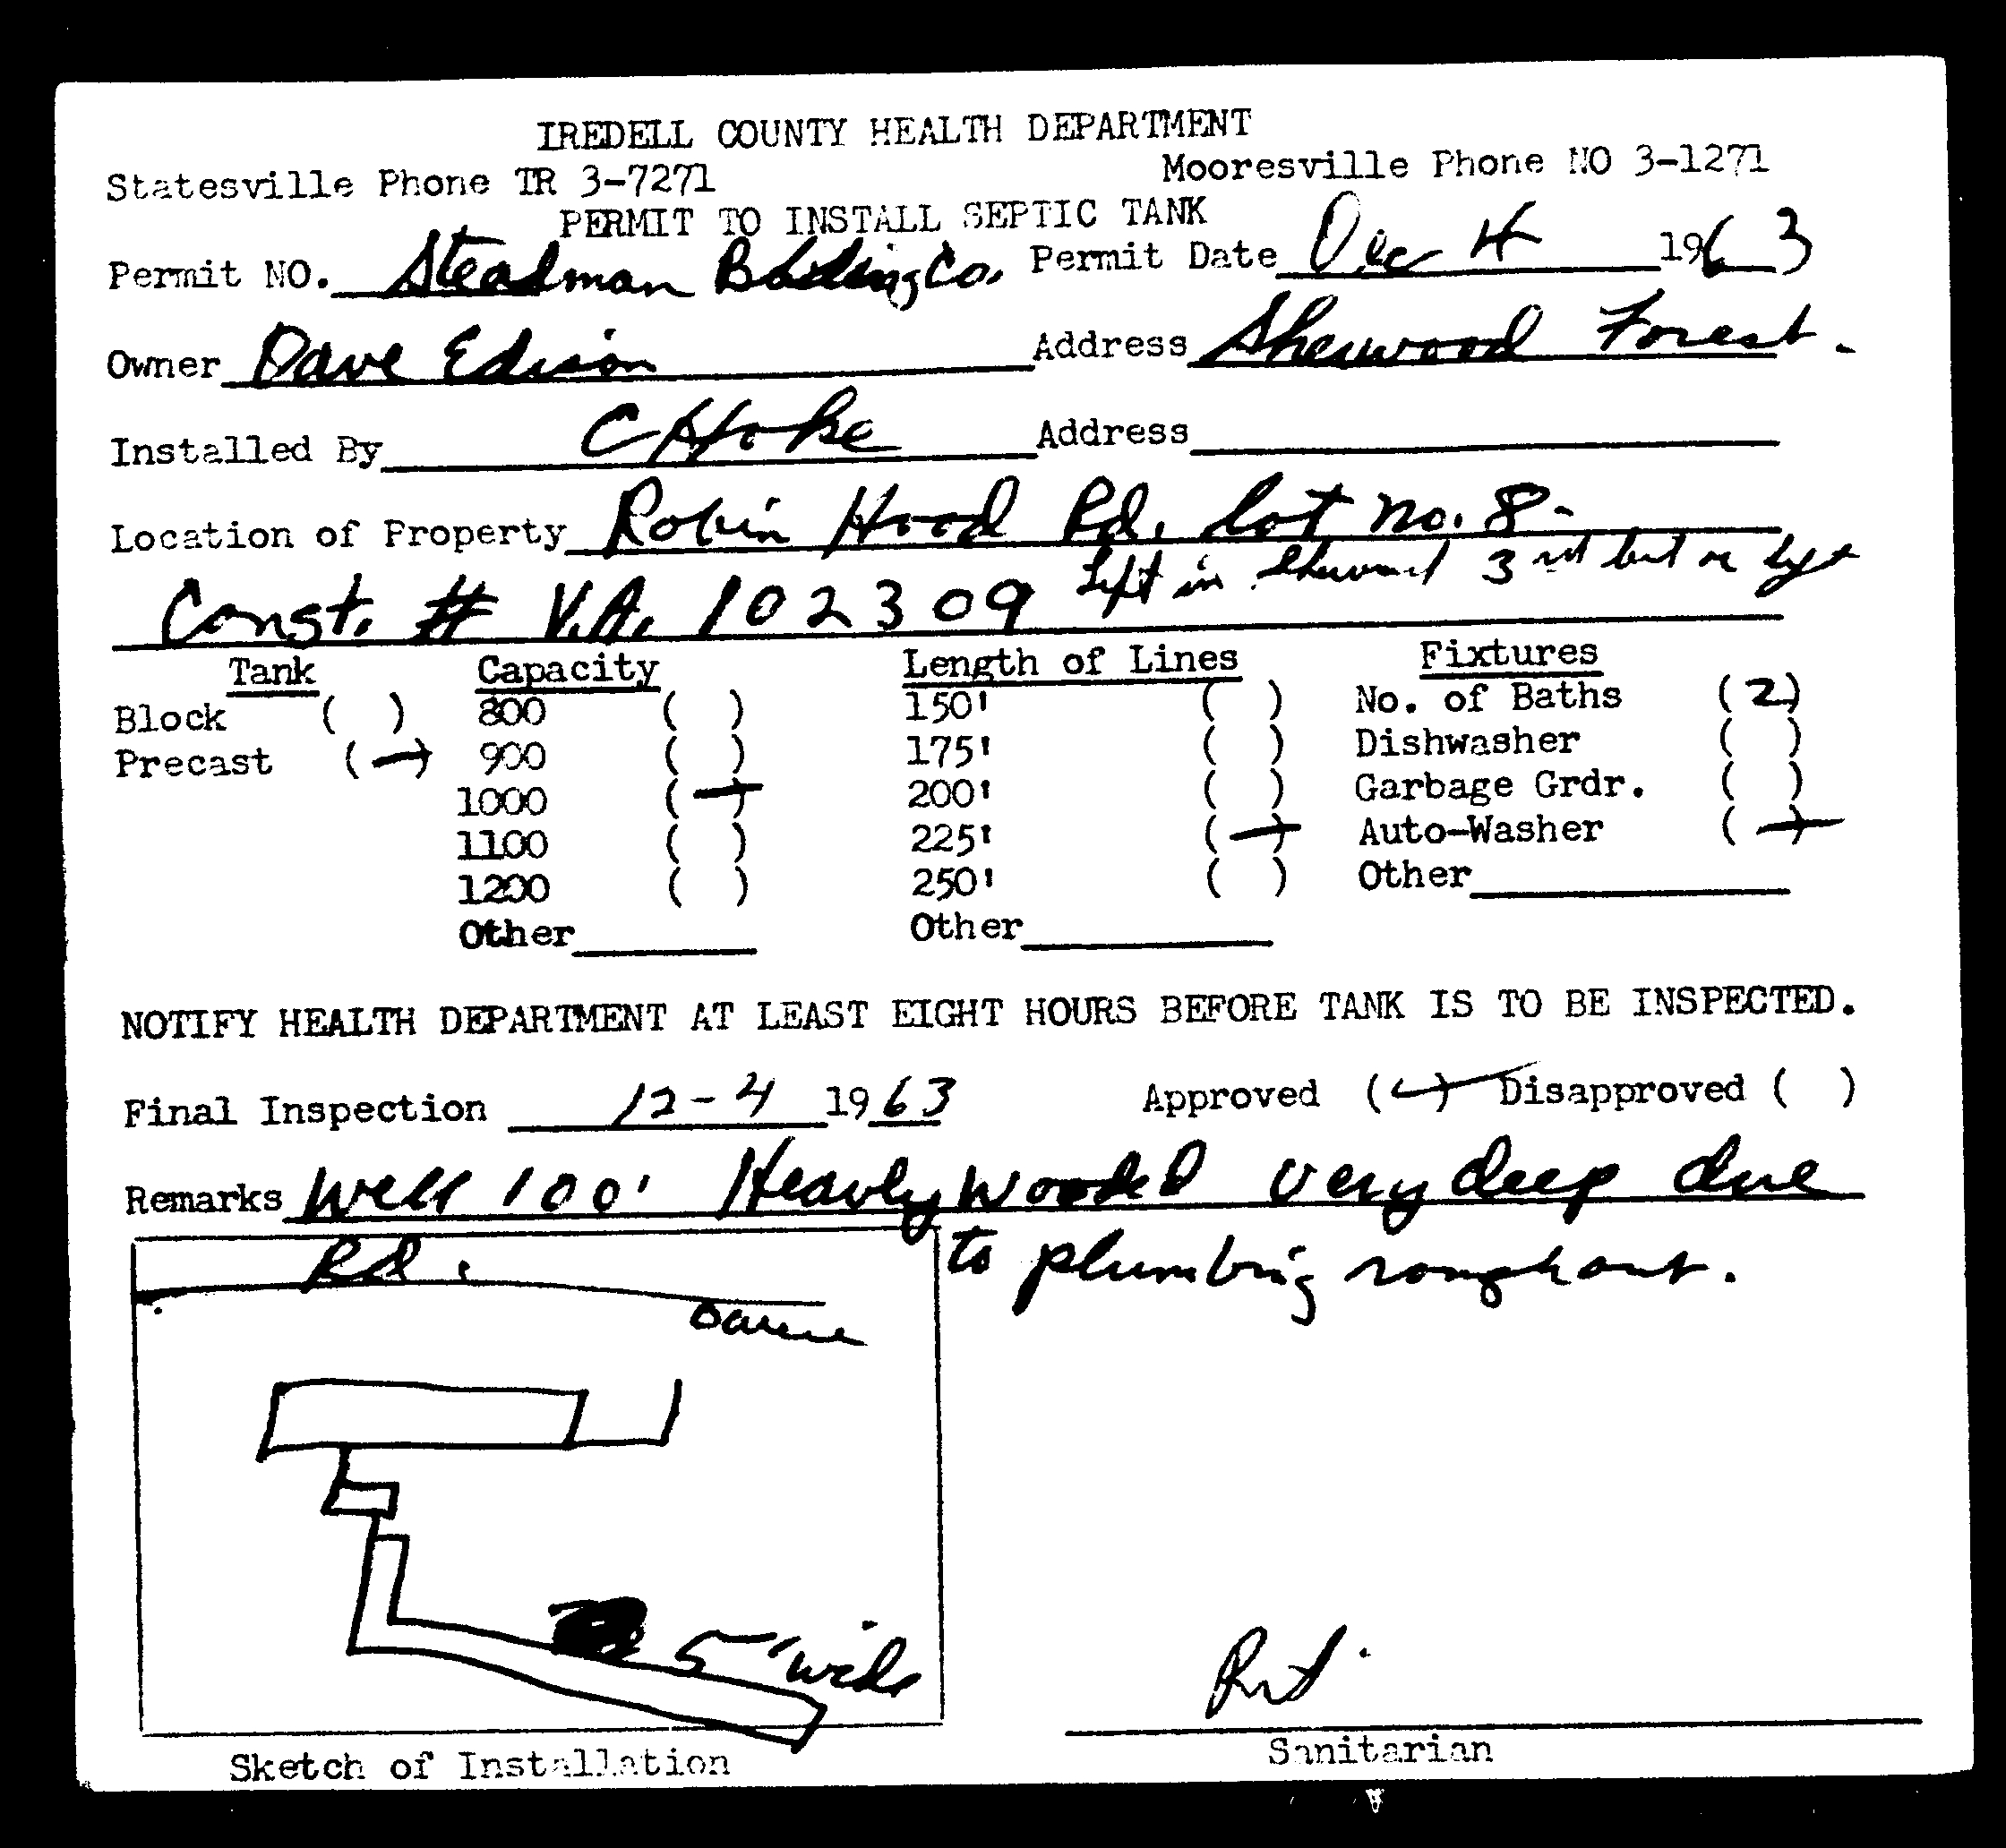 IREDELL COUNTY HEALTH DEPARTMENT
Statesville Phone TR 3-7271 Mooresville Phone NO 3-1271
PERMIT TO INSTALL SEPTIC TANK
Permit NO. Steadman Building Co. Permit Date Dec 4 1963
Owner Dave Edison Address Sherwood Forest.
Installed By C Hoke Address
Location of Property Robin Hood Rd. lot no. 8-
Const. # V.A. 102309 Left in 3
Tank Capacity Length of Lines Fixtures
Block ( ) 800 ( ) 150' ( ) No. of Baths (2)
Precast (—) 900 ( ) 175' ( ) Dishwasher ( )
1000 (—) 200' ( ) Garbage Grdr. ( )
1100 ( ) 225' (—) Auto-Washer (—)
1200 ( ) 250' ( ) Other
Other Other
NOTIFY HEALTH DEPARTMENT AT LEAST EIGHT HOURS BEFORE TANK IS TO BE INSPECTED.
Final Inspection 12-4 1963 Approved (✓) Disapproved ( )
Remarks Well 100' Heavly Wooded very deep due
to plumbing roughout.
Rd.
5' wide
Sketch of Installation
Sanitarian